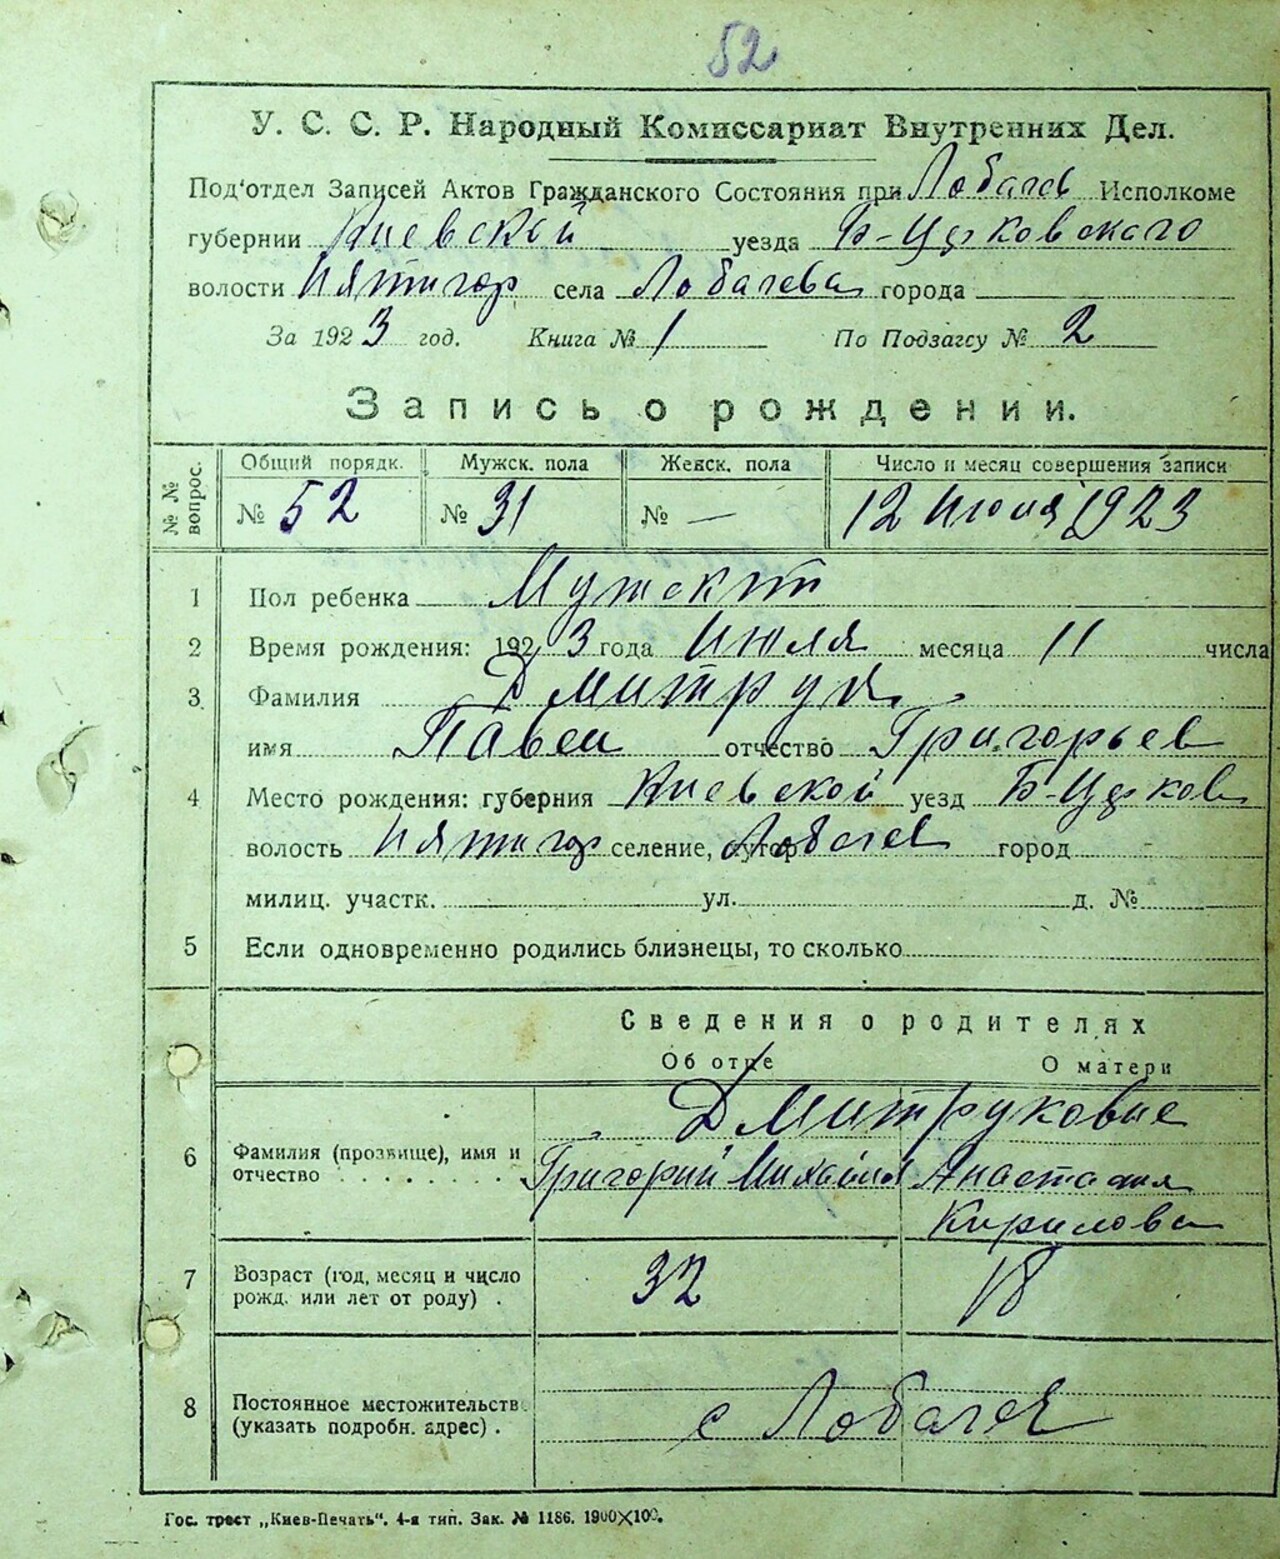 52
У. С. С. Р. Народный Комиссариат Внутренних Дел.
Под'отдел Записей Актов Гражданского Состояния при Лобачев Исполкоме
губернии Киевской уезда Б-Церковского
волости Пятигор села Лобачева города
За 1923 год. Книга № 1 По Подзагсу № 2
Запись о рождении.
№ № вопрос. Общий порядк. Мужск. пола Женск. пола Число и месяц совершения записи
№ 52 № 31 № — 12 Июля 1923
1 Пол ребенка Мужской
2 Время рождения: 1923 года Июля месяца 11 числа
3 Фамилия Дмитрук
имя Павел отчество Григорьев
4 Место рождения: губерния Киевской уезд Б-Церков
волость Пятигор селение, хутор Лобачев город -
милиц. участк. ул. д. №
5 Если одновременно родились близнецы, то сколько
Сведения о родителях
Об отце О матери
Дмитруковые
6 Фамилия (прозвище), имя и отчество Григорий Михайлов Анастасия
Кирилова
7 Возраст (год, месяц и число рожд. или лет от роду) . 32 18
8 Постоянное местожительств (указать подробн. адрес) . с Лобачев
Гос. трест „Киев-Печать“. 4-я тип. Зак. № 1186. 1900×100.